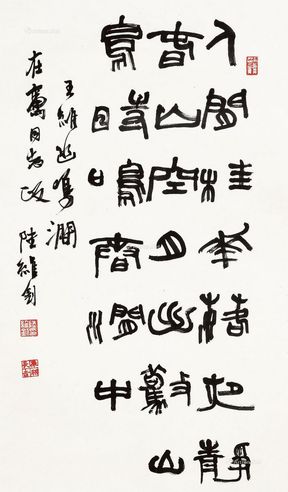 人閒桂華落夜靜
春山空月出驚山
鳥時鳴春澗中
王維鳥鳴澗
在同志政 陸維釗